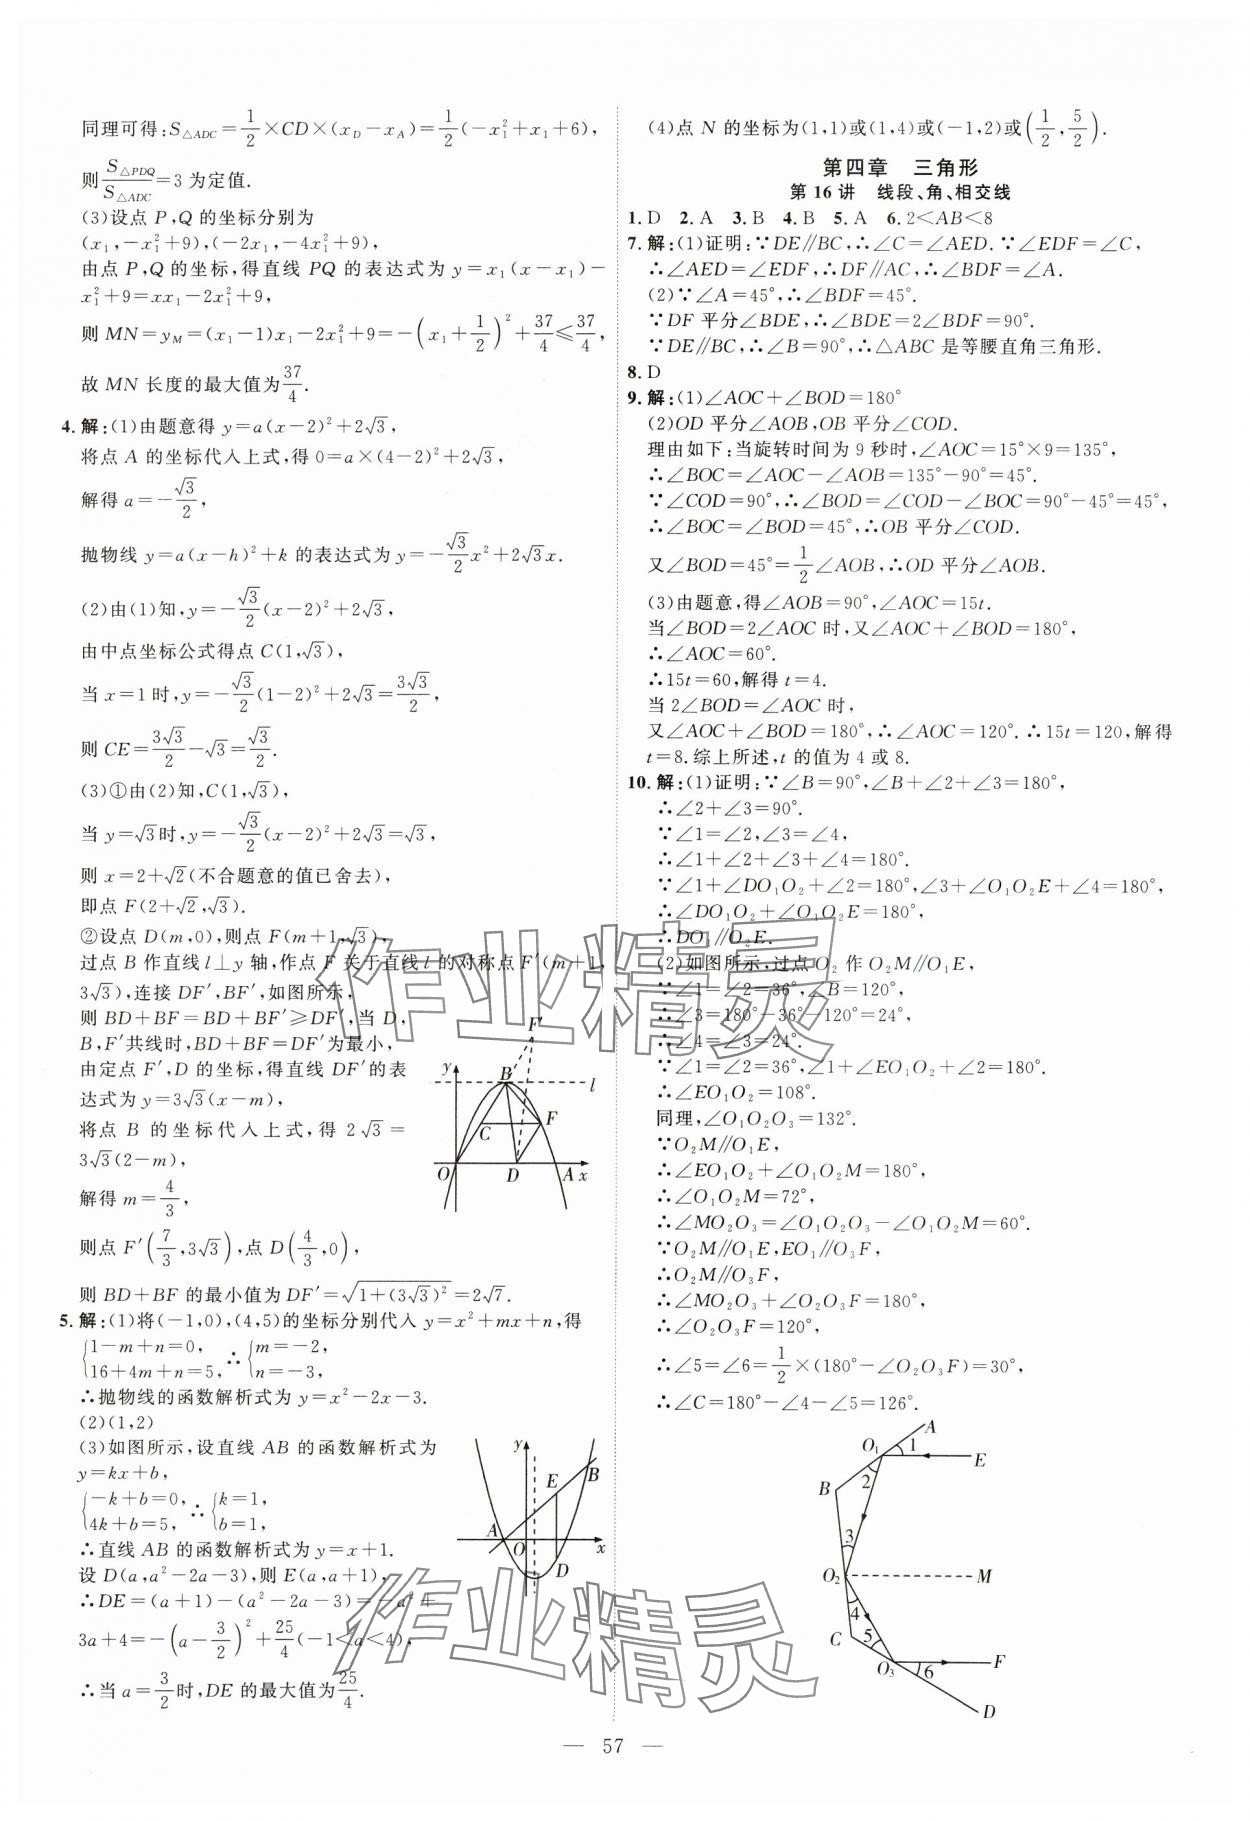 同理可得:S△ADC=1/2×CD×(x_D-x_A)=1/2(-x₁²+x₁+6),
则S△PDQ/S△ADC=3为定值.
(3)设点P,Q的坐标分别为
(x₁,-x₁²+9),(-2x₁,-4x₁²+9),
由点P,Q的坐标,得直线PQ的表达式为y=x₁(x-x₁)-
x₁²+9=xx₁-2x₁²+9,
则MN=y_M=(x₁-1)x₁-2x₁²+9=-(x₁+1/2)²+37/4≤37/4,
故MN长度的最大值为37/4.
4.解:(1)由题意得y=a(x-2)²+2√3,
将点A的坐标代入上式,得0=a×(4-2)²+2√3,
解得a=-√3/2,
抛物线y=a(x-h)²+k的表达式为y=-√3/2x²+2√3x.
(2)由(1)知,y=-√3/2(x-2)²+2√3,
由中点坐标公式得点C(1,√3),
当x=1时,y=-√3/2(1-2)²+2√3=3√3/2,
则CE=3√3/2-√3=√3/2.
(3)①由(2)知,C(1,√3),
当y=√3时,y=-√3/2(x-2)²+2√3=√3,
则x=2+√2(不合题意的值已舍去),
即点F(2+√2,√3).
②设点D(m,0),则点F(m+1,√3),
过点B作直线l⊥y轴,作点F关于直线l的对称点F′(m+1,
3√3),连接DF′,BF′,如图所示,
则BD+BF=BD+BF′≥DF′,当D,
B,F′共线时,BD+BF=DF′为最小,
由定点F′,D的坐标,得直线DF′的表
达式为y=3√3(x-m),
将点B的坐标代入上式,得2√3=
3√3(2-m),
解得m=4/3,
则点F′(7/3,3√3),点D(4/3,0),
则BD+BF的最小值为DF′=√(1+(3√3)²)=2√7.
y F′ B′ l C F O D A x
5.解:(1)将(-1,0),(4,5)的坐标分别代入y=x²+mx+n,得
{1-m+n=0, ∴{m=-2,
{16+4m+n=5, {n=-3,
∴抛物线的函数解析式为y=x²-2x-3.
(2)(1,2)
(3)如图所示,设直线AB的函数解析式为
y=kx+b,
{-k+b=0, ∴{k=1,
{4k+b=5, {b=1,
∴直线AB的函数解析式为y=x+1.
设D(a,a²-2a-3),则E(a,a+1),
∴DE=(a+1)-(a²-2a-3)=-a²+
3a+4=-(a-3/2)²+25/4(-1<a<4),
∴当a=3/2时,DE的最大值为25/4.
y E B A O D x
(4)点N的坐标为(1,1)或(1,4)或(-1,2)或(1/2,5/2).
第四章 三角形
第16讲 线段、角、相交线
1.D 2.A 3.B 4.B 5.A 6.2<AB<8
7.解:(1)证明:∵DE∥BC,∴∠C=∠AED.∵∠EDF=∠C,
∴∠AED=∠EDF,∴DF∥AC,∴∠BDF=∠A.
(2)∵∠A=45°,∴∠BDF=45°.
∵DF平分∠BDE,∴∠BDE=2∠BDF=90°.
∵DE∥BC,∴∠B=90°,∴△ABC是等腰直角三角形.
8.D
9.解:(1)∠AOC+∠BOD=180°
(2)OD平分∠AOB,OB平分∠COD.
理由如下:当旋转时间为9秒时,∠AOC=15°×9=135°,
∴∠BOC=∠AOC-∠AOB=135°-90°=45°.
∵∠COD=90°,∴∠BOD=∠COD-∠BOC=90°-45°=45°,
∴∠BOC=∠BOD=45°,∴OB平分∠COD.
又∠BOD=45°=1/2∠AOB,∴OD平分∠AOB.
(3)由题意,得∠AOB=90°,∠AOC=15t.
当∠BOD=2∠AOC时,又∠AOC+∠BOD=180°,
∴∠AOC=60°.
∴15t=60,解得t=4.
当2∠BOD=∠AOC时,
又∠AOC+∠BOD=180°,∴∠AOC=120°.∴15t=120,解得
t=8.综上所述,t的值为4或8.
10.解:(1)证明:∵∠B=90°,∠B+∠2+∠3=180°,
∴∠2+∠3=90°.
∵∠1=∠2,∠3=∠4,
∴∠1+∠2+∠3+∠4=180°.
∵∠1+∠DO₁O₂+∠2=180°,∠3+∠O₁O₂E+∠4=180°,
∴∠DO₁O₂+∠O₁O₂E=180°,
∴DO₁∥O₂E.
(2)如图所示,过点O₂作O₂M∥O₁E,
∵∠1=∠2=36°,∠B=120°,
∴∠3=180°-36°-120°=24°,
∴∠4=∠3=24°.
∵∠1=∠2=36°,∠1+∠EO₁O₂+∠2=180°.
∴∠EO₁O₂=108°.
同理,∠O₁O₂O₃=132°.
∵O₂M∥O₁E,
∴∠EO₁O₂+∠O₁O₂M=180°,
∴∠O₁O₂M=72°,
∴∠MO₂O₃=∠O₁O₂O₃-∠O₁O₂M=60°.
∵O₂M∥O₁E,EO₁∥O₃F,
∴O₂M∥O₃F,
∴∠MO₂O₃+∠O₂O₃F=180°,
∴∠O₂O₃F=120°,
∴∠5=∠6=1/2×(180°-∠O₂O₃F)=30°,
∴∠C=180°-∠4-∠5=126°.
A O₁ 1 E B 2 3 O₂ M 4 C 5 O₃ 6 F D
作业精灵
作业精灵
— 57 —